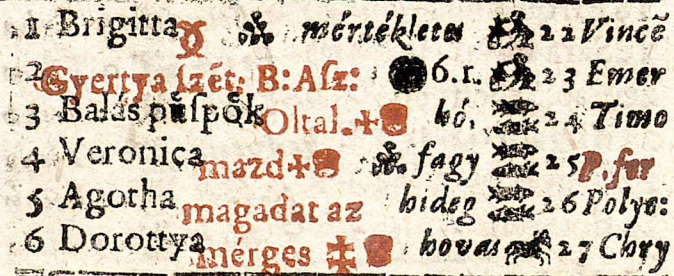 1 Brigitta mértékletes 22 Vincẽ
2 Gyertya ſzẽt: B: Aſz: 6. r. 23 Emer
3 Balás puͤſpoͤk Oltal. hó, 24 Timo
4 Veronica mazd fagy 25 P. for
5 Agotha magadat az hideg 26 Polyc:
6 Dorottya mérges hovas 27 Chry